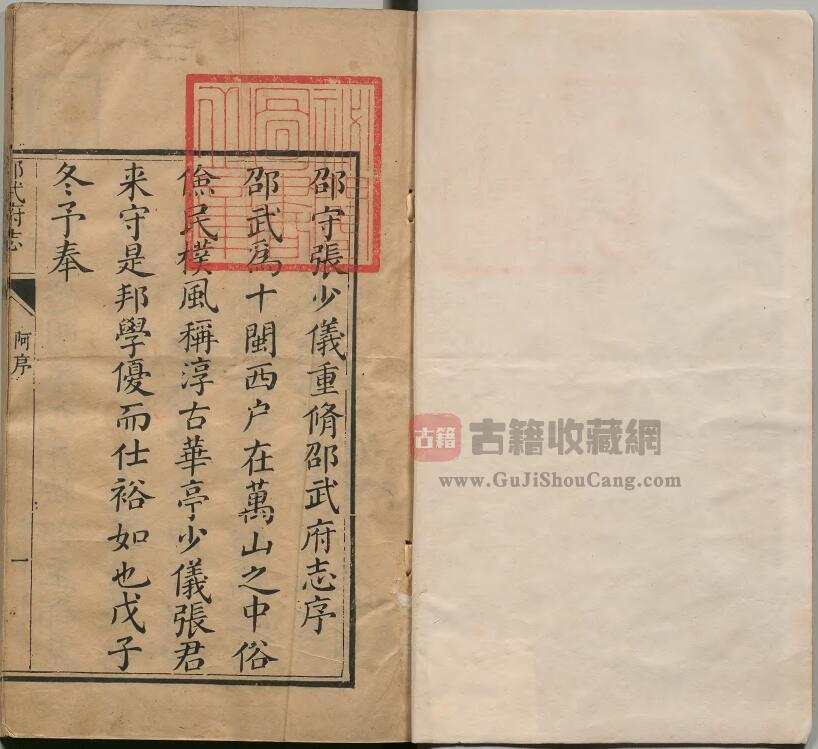 邵守張少儀重脩邵武府志序
邵武爲十閩西户在萬山之中俗
儉民樸風稱淳古華亭少儀張君
来守是邦學優而仕裕如也戊子
冬予奉
邵武府志
阿序
一
古籍
古籍收藏網
www.GuJiShouCang.com